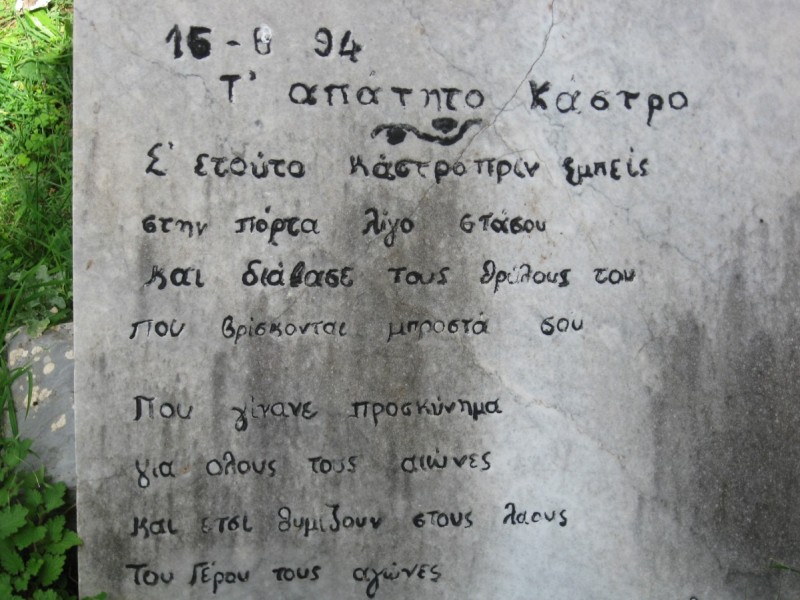 16-8 94
Τ' απάτητο Κάστρο
Σ' ετούτο κάστρο πριν εμπείς
στην πόρτα λίγο στάσου
και διάβασε τους θρύλους του
που βρίσκονται μπροστά σου
Που γίνανε προσκύνημα
για ολους τους αιώνες
και ετσι θυμίζουν στους λαους
του Γέρου τους αγώνες